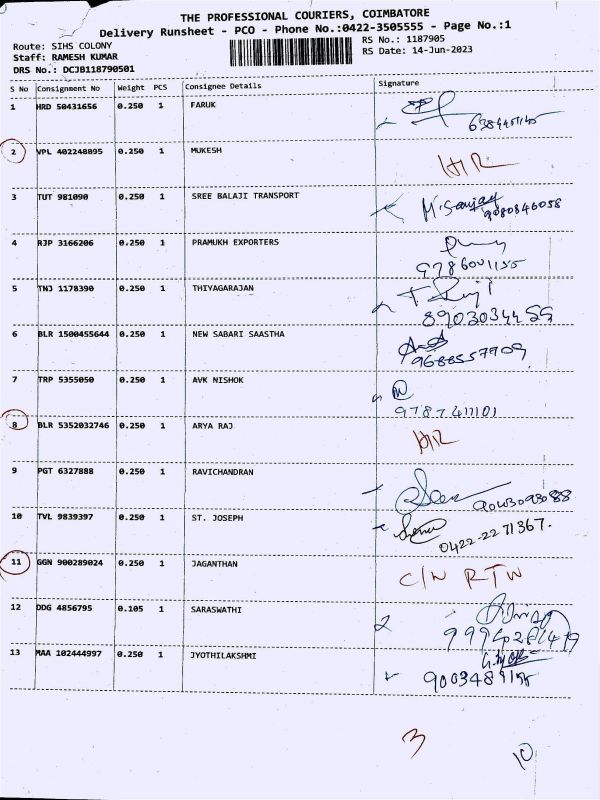 THE PROFESSIONAL COURIERS, COIMBATORE
Delivery Runsheet - PCO - Phone No.:0422-3505555 - Page No.:1
Route: SIHS COLONY
RS No.: 1187905
Staff: RAMESH KUMAR
RS Date: 14-Jun-2023
DRS No.: DCJB118790501
S No Consignment No Weight PCS Consignee Details Signature
1 HRD 50431656 0.250 1 FARUK
2 VPL 402248895 0.250 1 MUKESH
3 TUT 981090 0.250 1 SREE BALAJI TRANSPORT M.Sanjay 9080846058
4 RJP 3166206 0.250 1 PRAMUKH EXPORTERS
5 TNJ 1178390 0.250 1 THIYAGARAJAN
6 BLR 1500455644 0.250 1 NEW SABARI SAASTHA 9688557909
7 TRP 5355050 0.250 1 AVK NISHOK 9787411101
8 BLR 5352032746 0.250 1 ARYA RAJ
9 PGT 6327888 0.250 1 RAVICHANDRAN
10 TVL 9839397 0.250 1 ST. JOSEPH 0422-2271367.
11 GGN 900289024 0.250 1 JAGANTHAN C/N RTW
12 DDG 4856795 0.105 1 SARASWATHI
13 MAA 102444997 0.250 1 JYOTHILAKSHMI
3 10